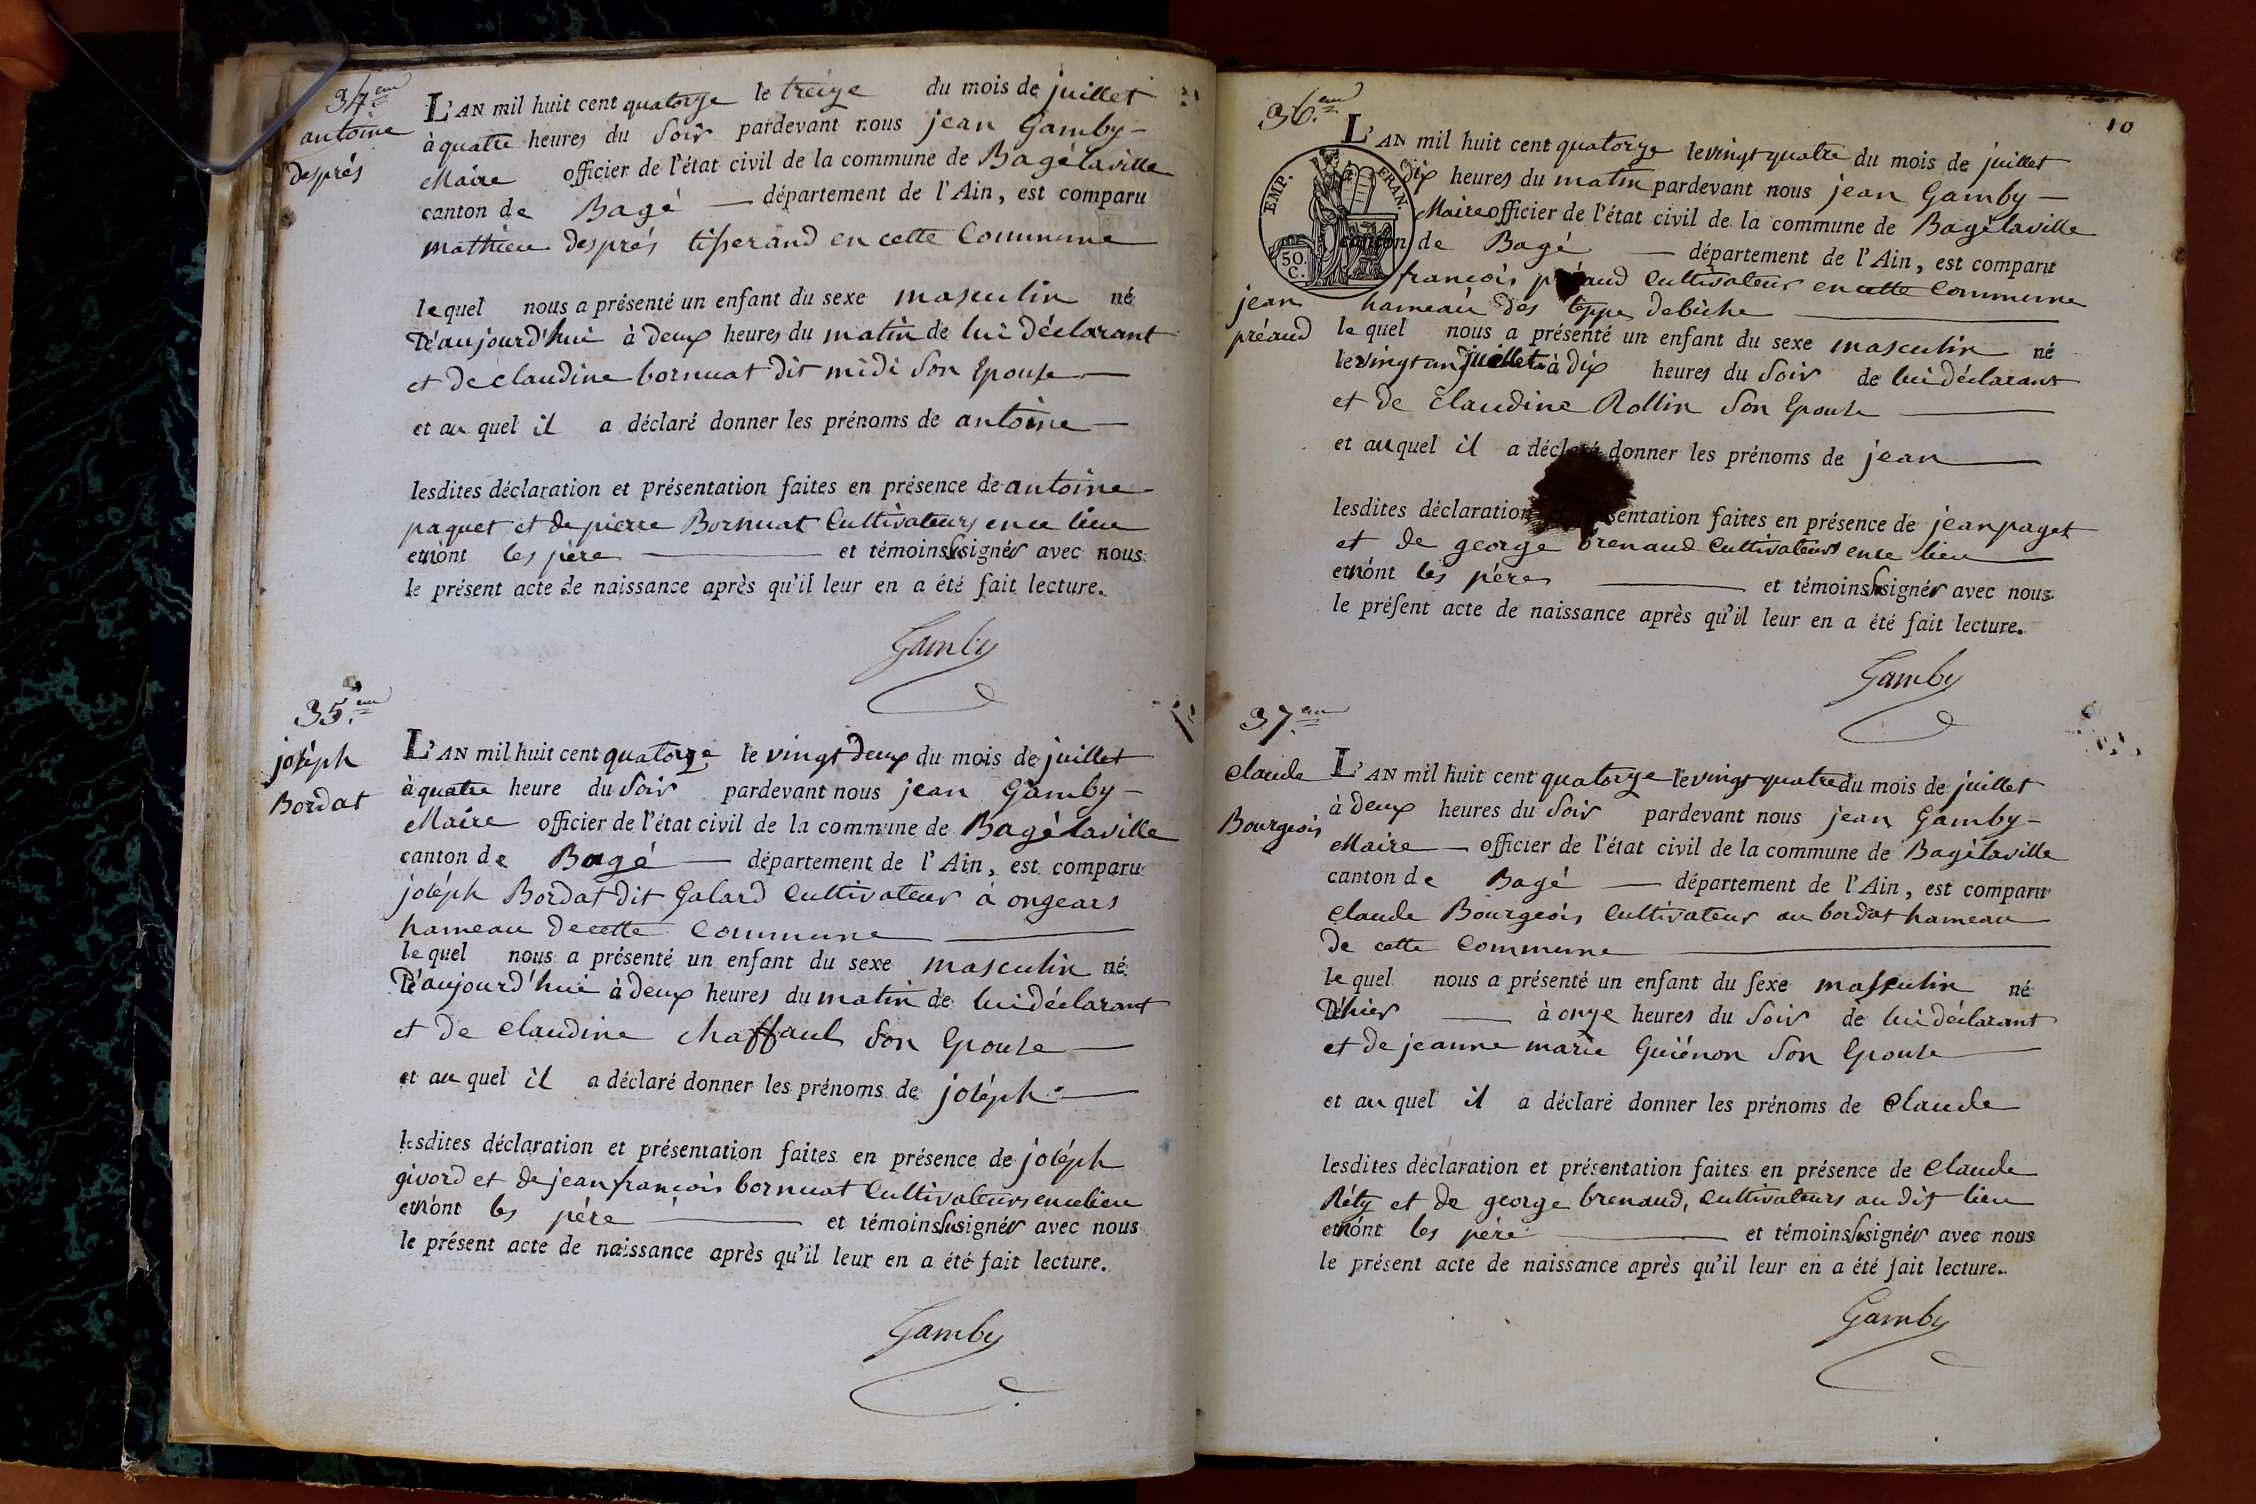 34.em
antoine
després
L'AN mil huit cent quatorze le treize du mois de juillet
à quatre heures du soir pardevant nous jean Gamby —
Maire officier de l'état civil de la commune de Bagélaville
canton de Bagé — département de l'Ain, est comparu
mathieu després tisserand en cette Commune
lequel nous a présenté un enfant du sexe masculin né
d'aujourd'hui à deux heures du matin de lui déclarant
et de claudine bornuat dit midi son Epouse —
et au quel il a déclaré donner les prénoms de antoine —
lesdites déclaration et présentation faites en présence de antoine
paquet et de pierre Bornuat Cultivateurs en ce lieu
et n'ont les père — et témoins signés avec nous
le présent acte de naissance après qu'il leur en a été fait lecture.
Gamby
35.em
joséph
Bordat
L'AN mil huit cent quatorze le vingt deux du mois de juillet
à quatre heure du soir pardevant nous jean Gamby —
Maire officier de l'état civil de la commune de Bagélaville
canton de Bagé — département de l'Ain, est comparu
joséph Bordat dit Galard Cultivateur à ongears
hameau de cette Commune —
lequel nous a présenté un enfant du sexe masculin né
d'aujourd'hui à deux heures du matin de lui déclarant
et de claudine chaffaul son Epouse —
et au quel il a déclaré donner les prénoms de joséph —
lesdites déclaration et présentation faites en présence de joséph
givord et de jean françois bornuat Cultivateurs en ce lieu
et n'ont les père — et témoins signés avec nous
le présent acte de naissance après qu'il leur en a été fait lecture.
Gamby
10
36.em
EMP. FRAN.
50. C.
jean
préaud
L'AN mil huit cent quatorze le vingt quatre du mois de juillet
à dix heures du matin pardevant nous jean Gamby —
Maire officier de l'état civil de la commune de Bagélaville
canton de Bagé — département de l'Ain, est comparu
françois préaud Cultivateur en cette Commune
hameau des teppe de biche —
lequel nous a présenté un enfant du sexe masculin né
le vingt un juillet à dix heures du soir de lui déclarant
et de Claudine Rollin son Epouse —
et au quel il a déclaré donner les prénoms de jean —
lesdites déclaration et présentation faites en présence de jean paget
et de george brenaud Cultivateurs en ce lieu —
et n'ont les péres — et témoins signés avec nous
le présent acte de naissance après qu'il leur en a été fait lecture.
Gamby
37.em
claude
Bourgeois
L'AN mil huit cent quatorze le vingt quatre du mois de juillet
à deux heures du soir pardevant nous jean Gamby —
Maire — officier de l'état civil de la commune de Bagélaville
canton de Bagé — département de l'Ain, est comparu
claude Bourgeois Cultivateur au bordat hameau
de cette Commune —
lequel nous a présenté un enfant du sexe masculin né
D'hier — à onze heures du soir de lui déclarant
et de jeanne marie Guiénon son Epouse —
et au quel il a déclaré donner les prénoms de claude
lesdites déclaration et présentation faites en présence de claude
Réty et de george brenaud, Cultivateurs au dit lieu
et n'ont les père — et témoins signés avec nous
le présent acte de naissance après qu'il leur en a été fait lecture.
Gamby